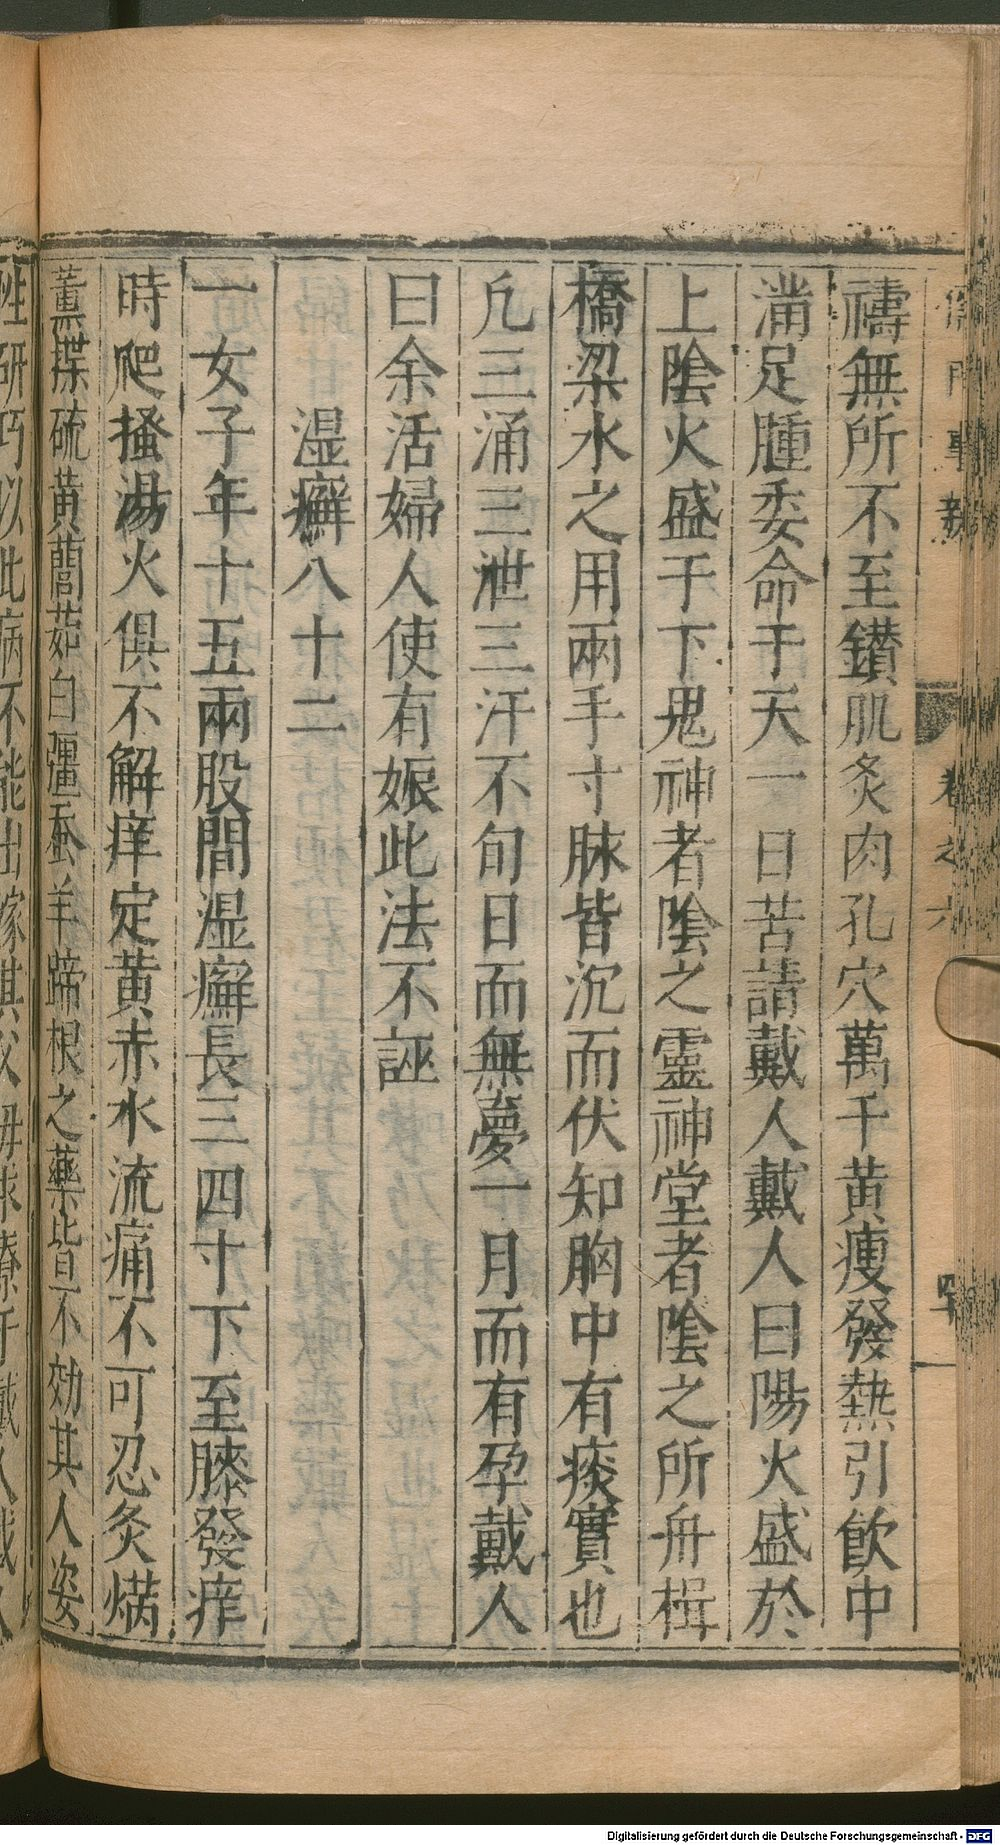 儒門事親 卷之六 四十
禱無所不至鑚肌灸肉孔穴萬千黄瘦發熱引飮中
滿足腫委命于天一日苦請戴人戴人曰陽火盛於
上陰火盛于下鬼神者陰之靈神堂者陰之所舟楫
橋梁水之用兩手寸脉皆沉而伏知胸中有痰實也
凢三涌三泄三汗不旬日而無夢一月而有孕戴人
曰余活婦人使有娠此法不誣
湿癬八十二
一女子年十五兩股間湿癬長三四寸下至膝發痒
時爬搔湯火俱不解痒定黄赤水流痛不可忍灸焫
薫揲硫黄䕡茹白殭蚕羊蹄根之藥皆不効其人姿
性研巧以此病不能出嫁其父母求療于戴人戴人
Digitalisierung gefördert durch die Deutsche Forschungsgemeinschaft - DFG